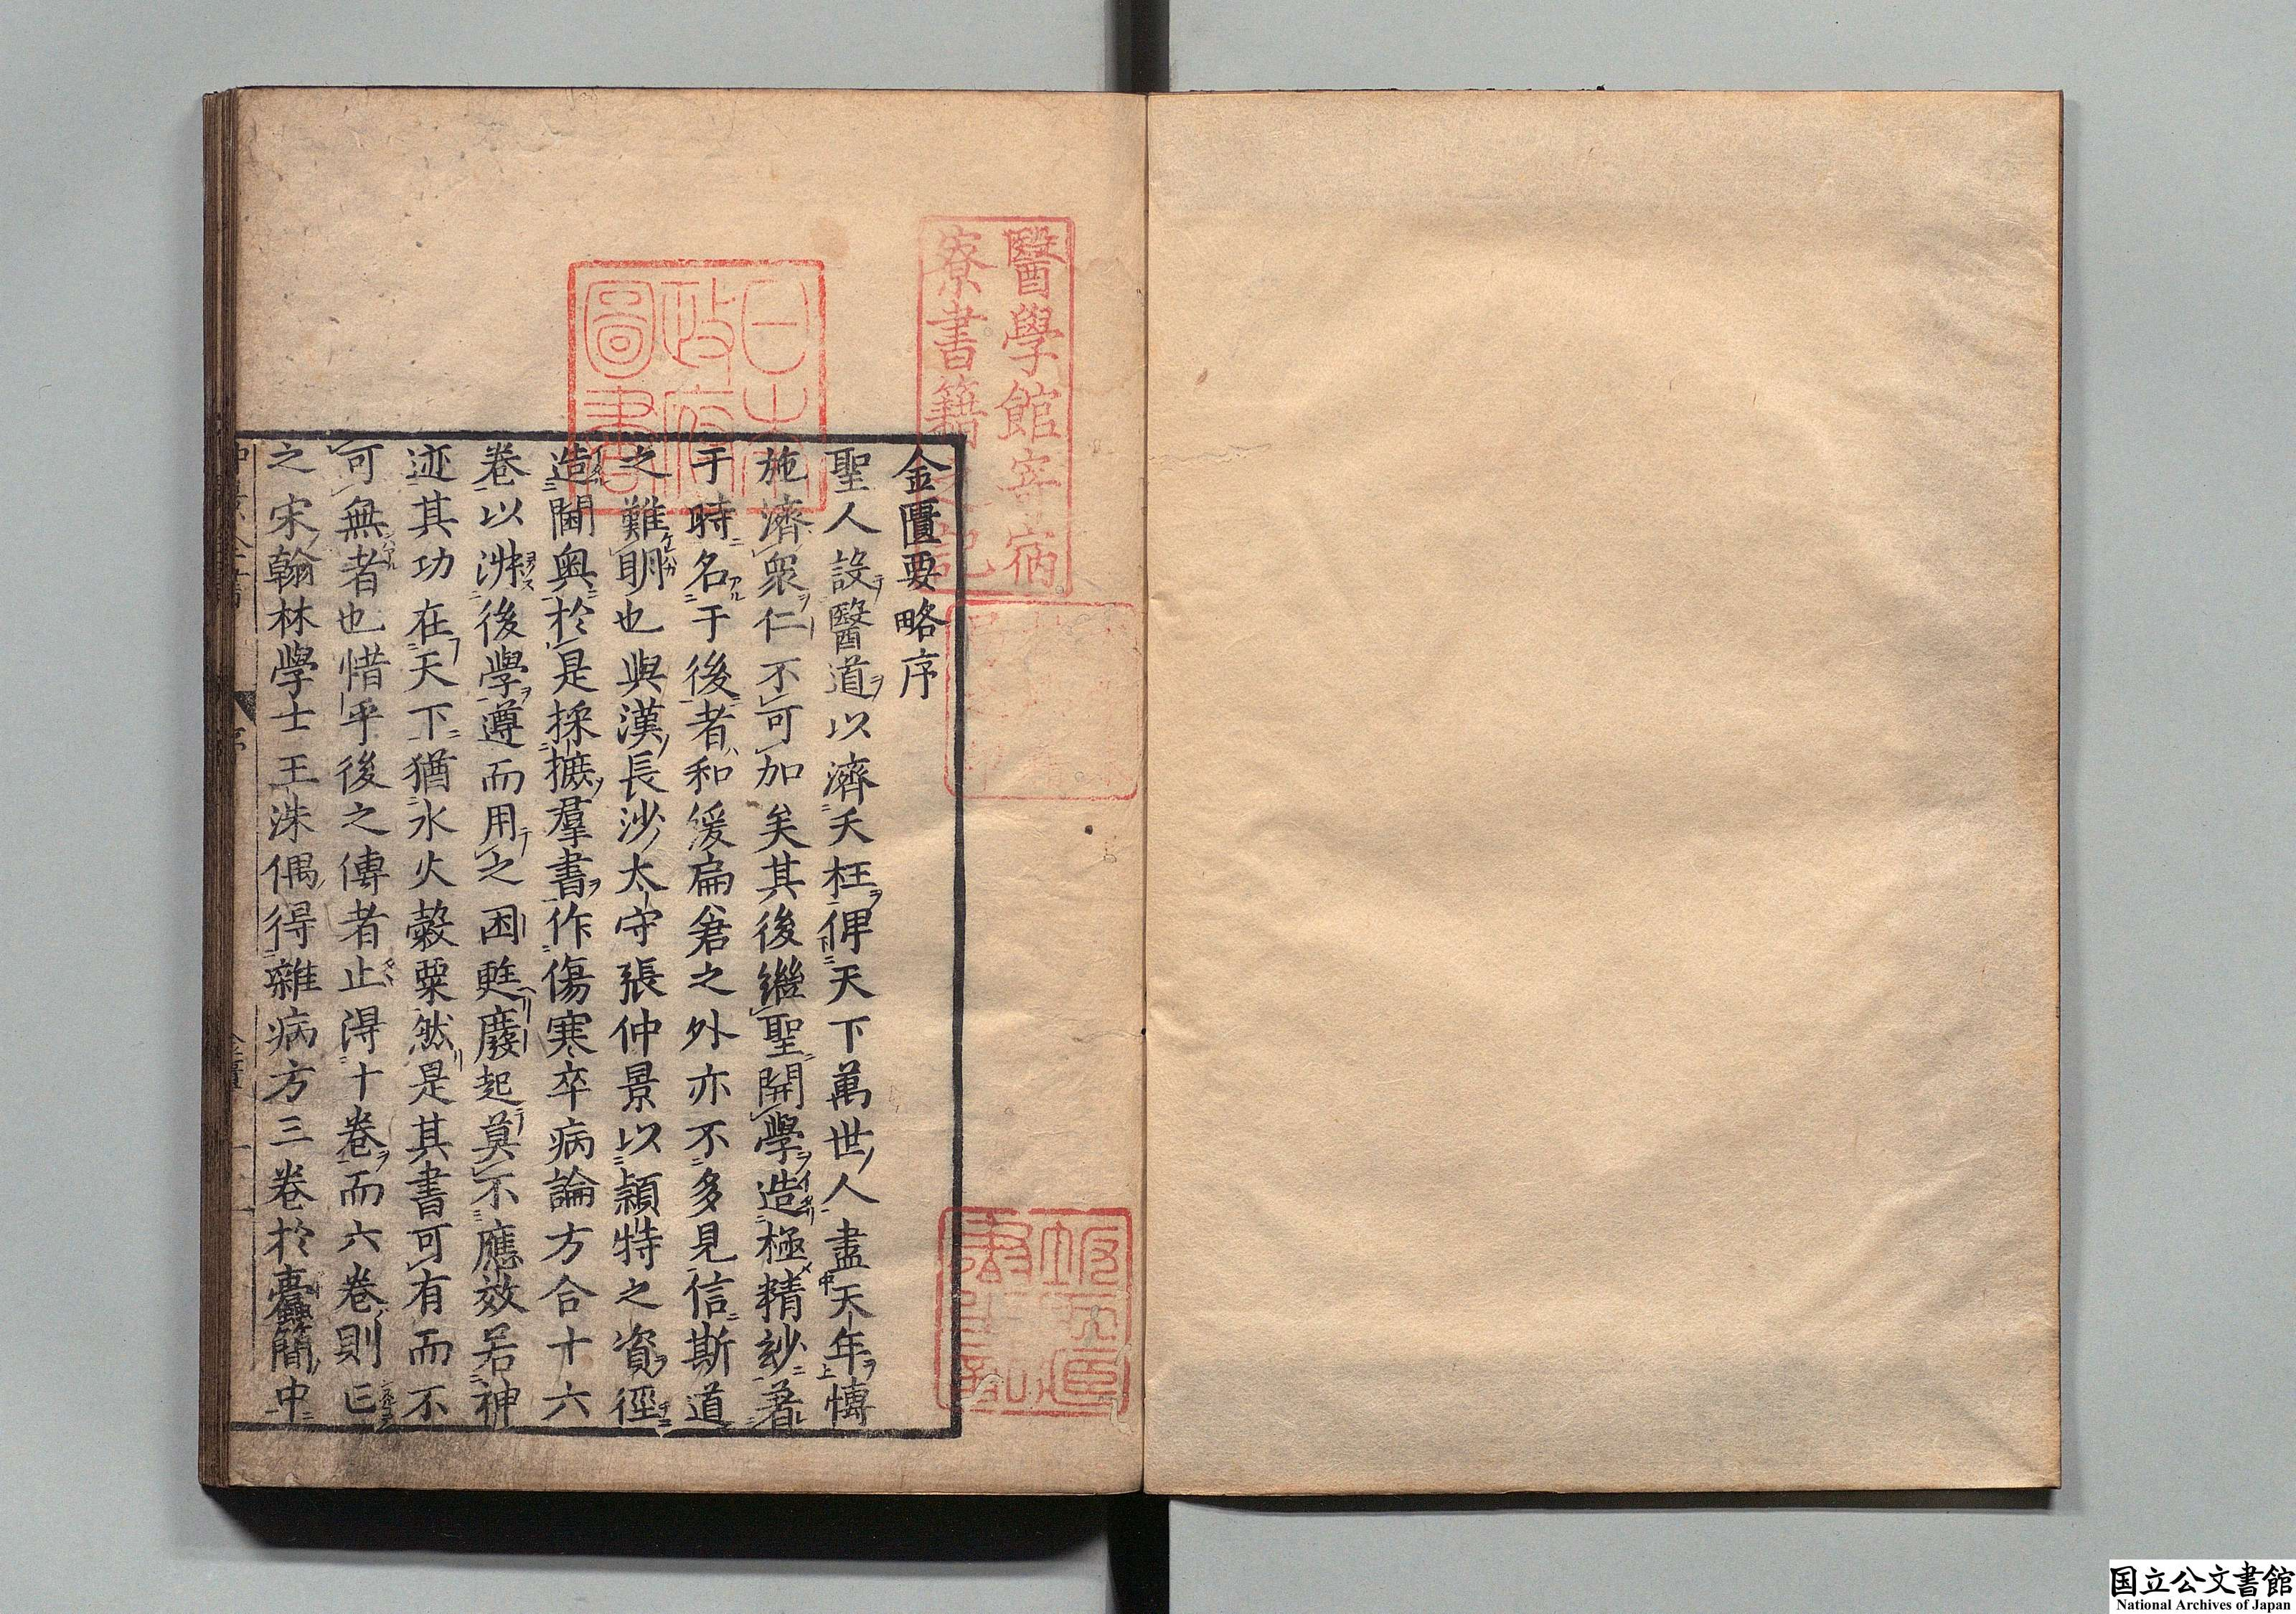 金匱要略序
聖人設醫道以濟夭枉俾天下萬世人盡天年博
施濟衆仁不可加矣其後繼聖開學造極精玅著
于時名于後者和緩扁倉之外亦不多見信斯道
之難明也與漢長沙太守張仲景以穎特之資徑
造閫奥於是採摭羣書作傷寒卒病論方合十六
卷以淑後學遵而用之困甦廢起莫不應效若神
迹其功在天下猶水火穀粟然是其書可有而不
可無者也惜乎後之傳者止得十卷而六卷則亡
之宋翰林學士王洙偶得雜病方三卷於蠹簡中
序
一
醫學館寄宿
寮書籍之記
日本
政府
圖書
国立公文書館
National Archives of Japan